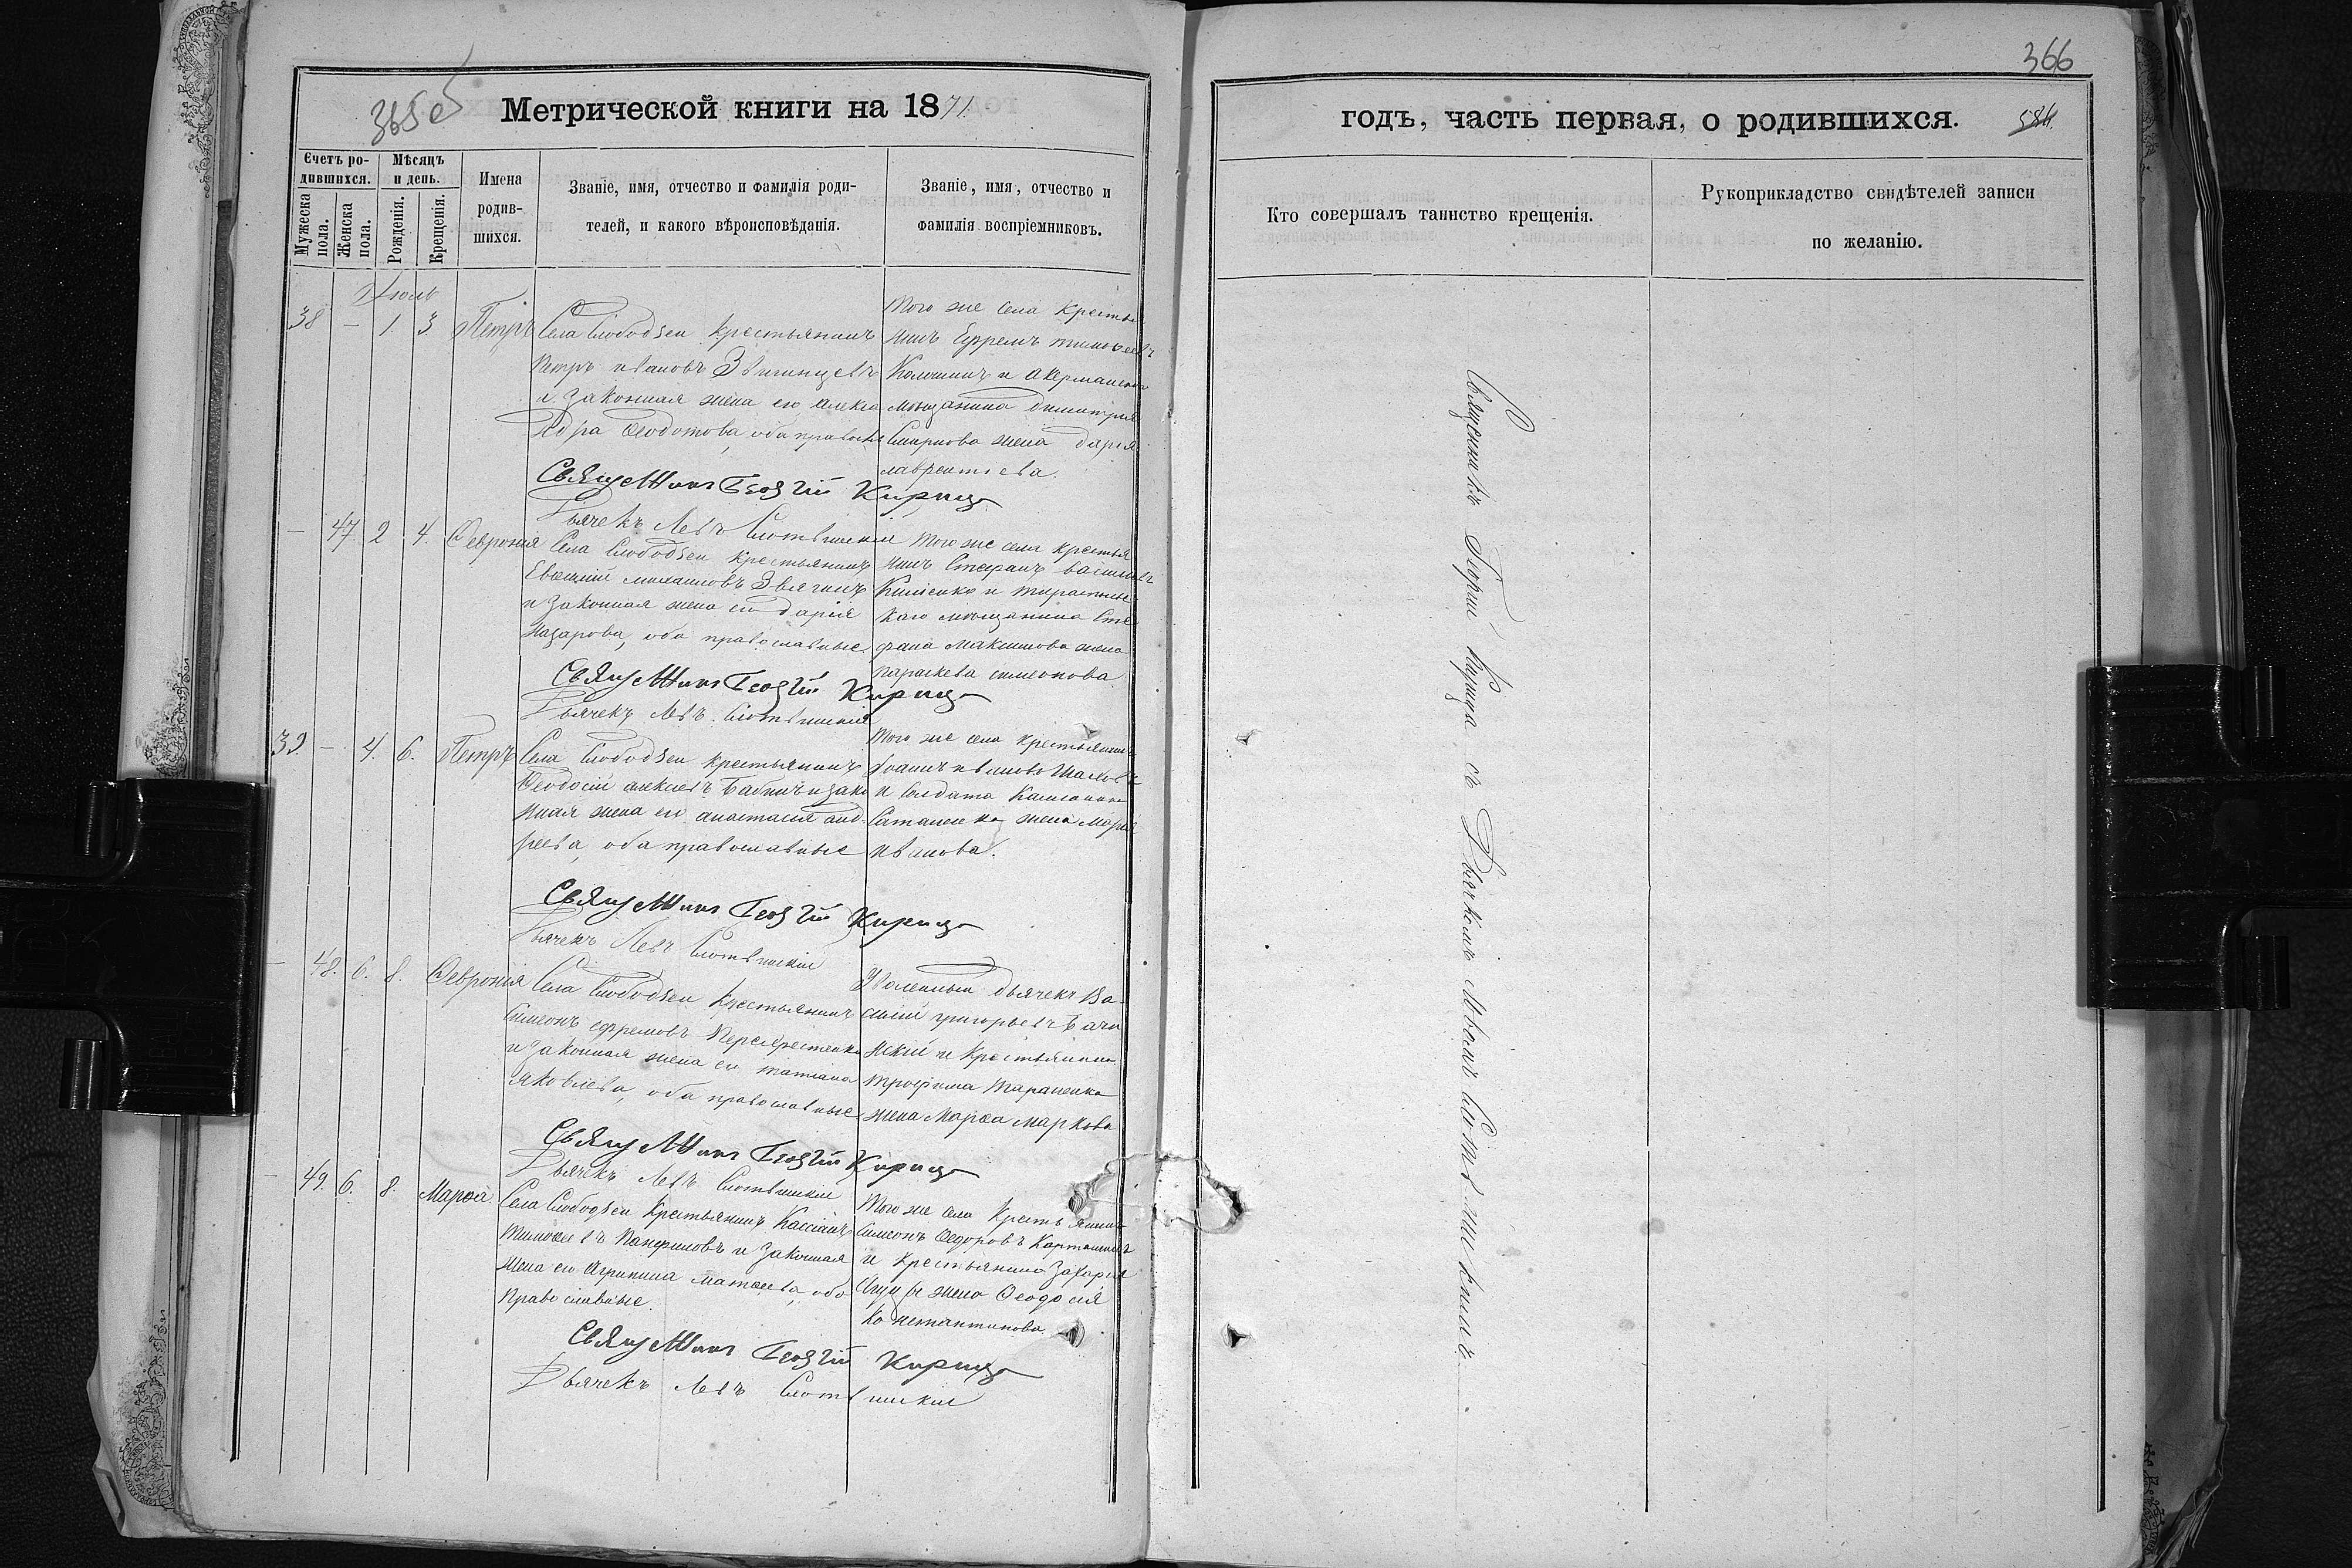 365 об
Метрической книги на 1871
Счетъ ро-
дившихся.
Мѣсяцъ
и день.
Мужеска
пола.
Женска
пола.
Рожденія.
Крещенія.
Имена
родив-
шихся.
Званіе, имя, отчество и фамилія роди-
телей, и какого вѣроисповѣданія.
Званіе, имя, отчество и
фамилія воспріемниковъ.
Іюль
38 – 1. 3. Петръ
Села Слободзеи крестьянинъ
Петръ ивановъ Звигинцевъ
и законная жена его Алекса
ндра Феодотова, оба правосл
Того же села крестья
нинъ Ефремъ тимофеевъ
и Акерманска
мѣщанина димитрия
Смирнова жена дарія
лаврентіева.
Священникъ Георгій Кирица
Дьячекъ Левъ
– 47 2 4. Февронія
Села Слободзеи крестьянинъ
михаиловъ Звягинъ
и законная жена его дарія
Назарова, оба православные
Того же села крестья
нинъ Стефанъ васильевъ
и тирасполь
каго мѣщанина Сте
фана Максимова жена
параскева симеонова
Священникъ Георгій Кирица
Дьячекъ Левъ
39 – 4. 6. Петръ
Села Слободзеи крестьянинъ
Феодосій алексіевъ Бабичъ и зако
нная жена его анастасія анд
реева, оба православные
Того же села крестьянинъ
Іоаннъ ивановъ
и Солдата
жена Марія
иванова.
Священникъ Георгій Кирица
Дьячекъ Левъ
– 48. 6. 8. Февронія
Села Слободзеи крестьянинъ
Симеонъ ефремовъ Перехрестенко
и законная жена его татіана
яковлева, оба православные
Уволенный дьячекъ Ва
силій григорьевъ Бачи
нскій и крестьянина
трофима Тараненка
жена Марфа маркова
Священникъ Георгій Кирица
Дьячекъ Левъ
– 49. 6. 8. Марѳа.
Села Слободзеи крестьянинъ Кассіанъ
Тимофеевъ Панфиловъ и законная
жена его Агрипина матфеева, оба
православные.
Того же села крестьянинъ
Симеонъ Федоровъ
и крестьянина Захарія
жена Феодосія
константинова
Священникъ Георгій Кирица
Дьячекъ Левъ
366
годъ, часть первая, о родившихся.
584.
Кто совершалъ таинство крещенія.
Рукоприкладство свидѣтелей записи
по желанію.
Священникъ Георгій Кирица съ Дьячкомъ Львомъ